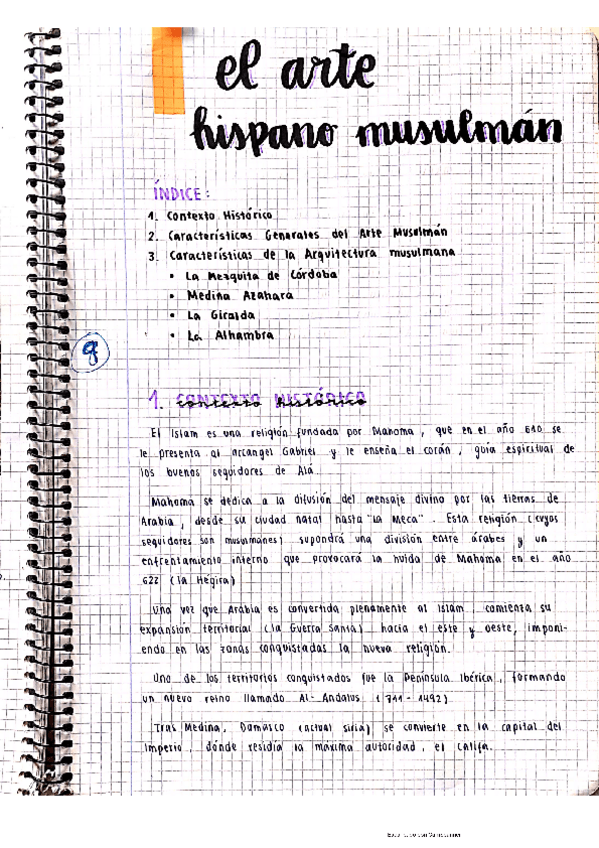 el arte
hispano musulmán
ÍNDICE:
1. Contexto Histórico
2. Características Generales del Arte Musulmán
3. Características de la Arquitectura musulmana
• La Mezquita de Córdoba
• Medina Azahara
• La Giralda
• La Alhambra
9
1. CONTEXTO HISTÓRICO
El Islam es una religión fundada por Mahoma, que en el año 610 se
le presenta al arcangel Gabriel y le enseña el corán, guía espiritual de
los buenos seguidores de Alá.
Mahoma se dedica a la difusión del mensaje divino por las tierras de
Arabia, desde su ciudad natal hasta "La Meca". Esta religión (cuyos
seguidores son musulmanes) supondrá una división entre árabes y un
enfrentamiento interno que provocará la huida de Mahoma en el año
622 (la Hégira)
Una vez que Arabia es convertida plenamente al Islam, comienza su
expansión territorial (la Guerra Santa) hacia el este y oeste, imponi-
endo en las zonas conquistadas la nueva religión.
Uno de los territorios conquistados fue la Península Ibérica, formando
un nuevo reino llamado Al-Andalus (711-1492)
Tras Medina, Damasco (actual siria) se convierte en la capital del
Imperio, dónde residía la máxima autoridad, el Califa.